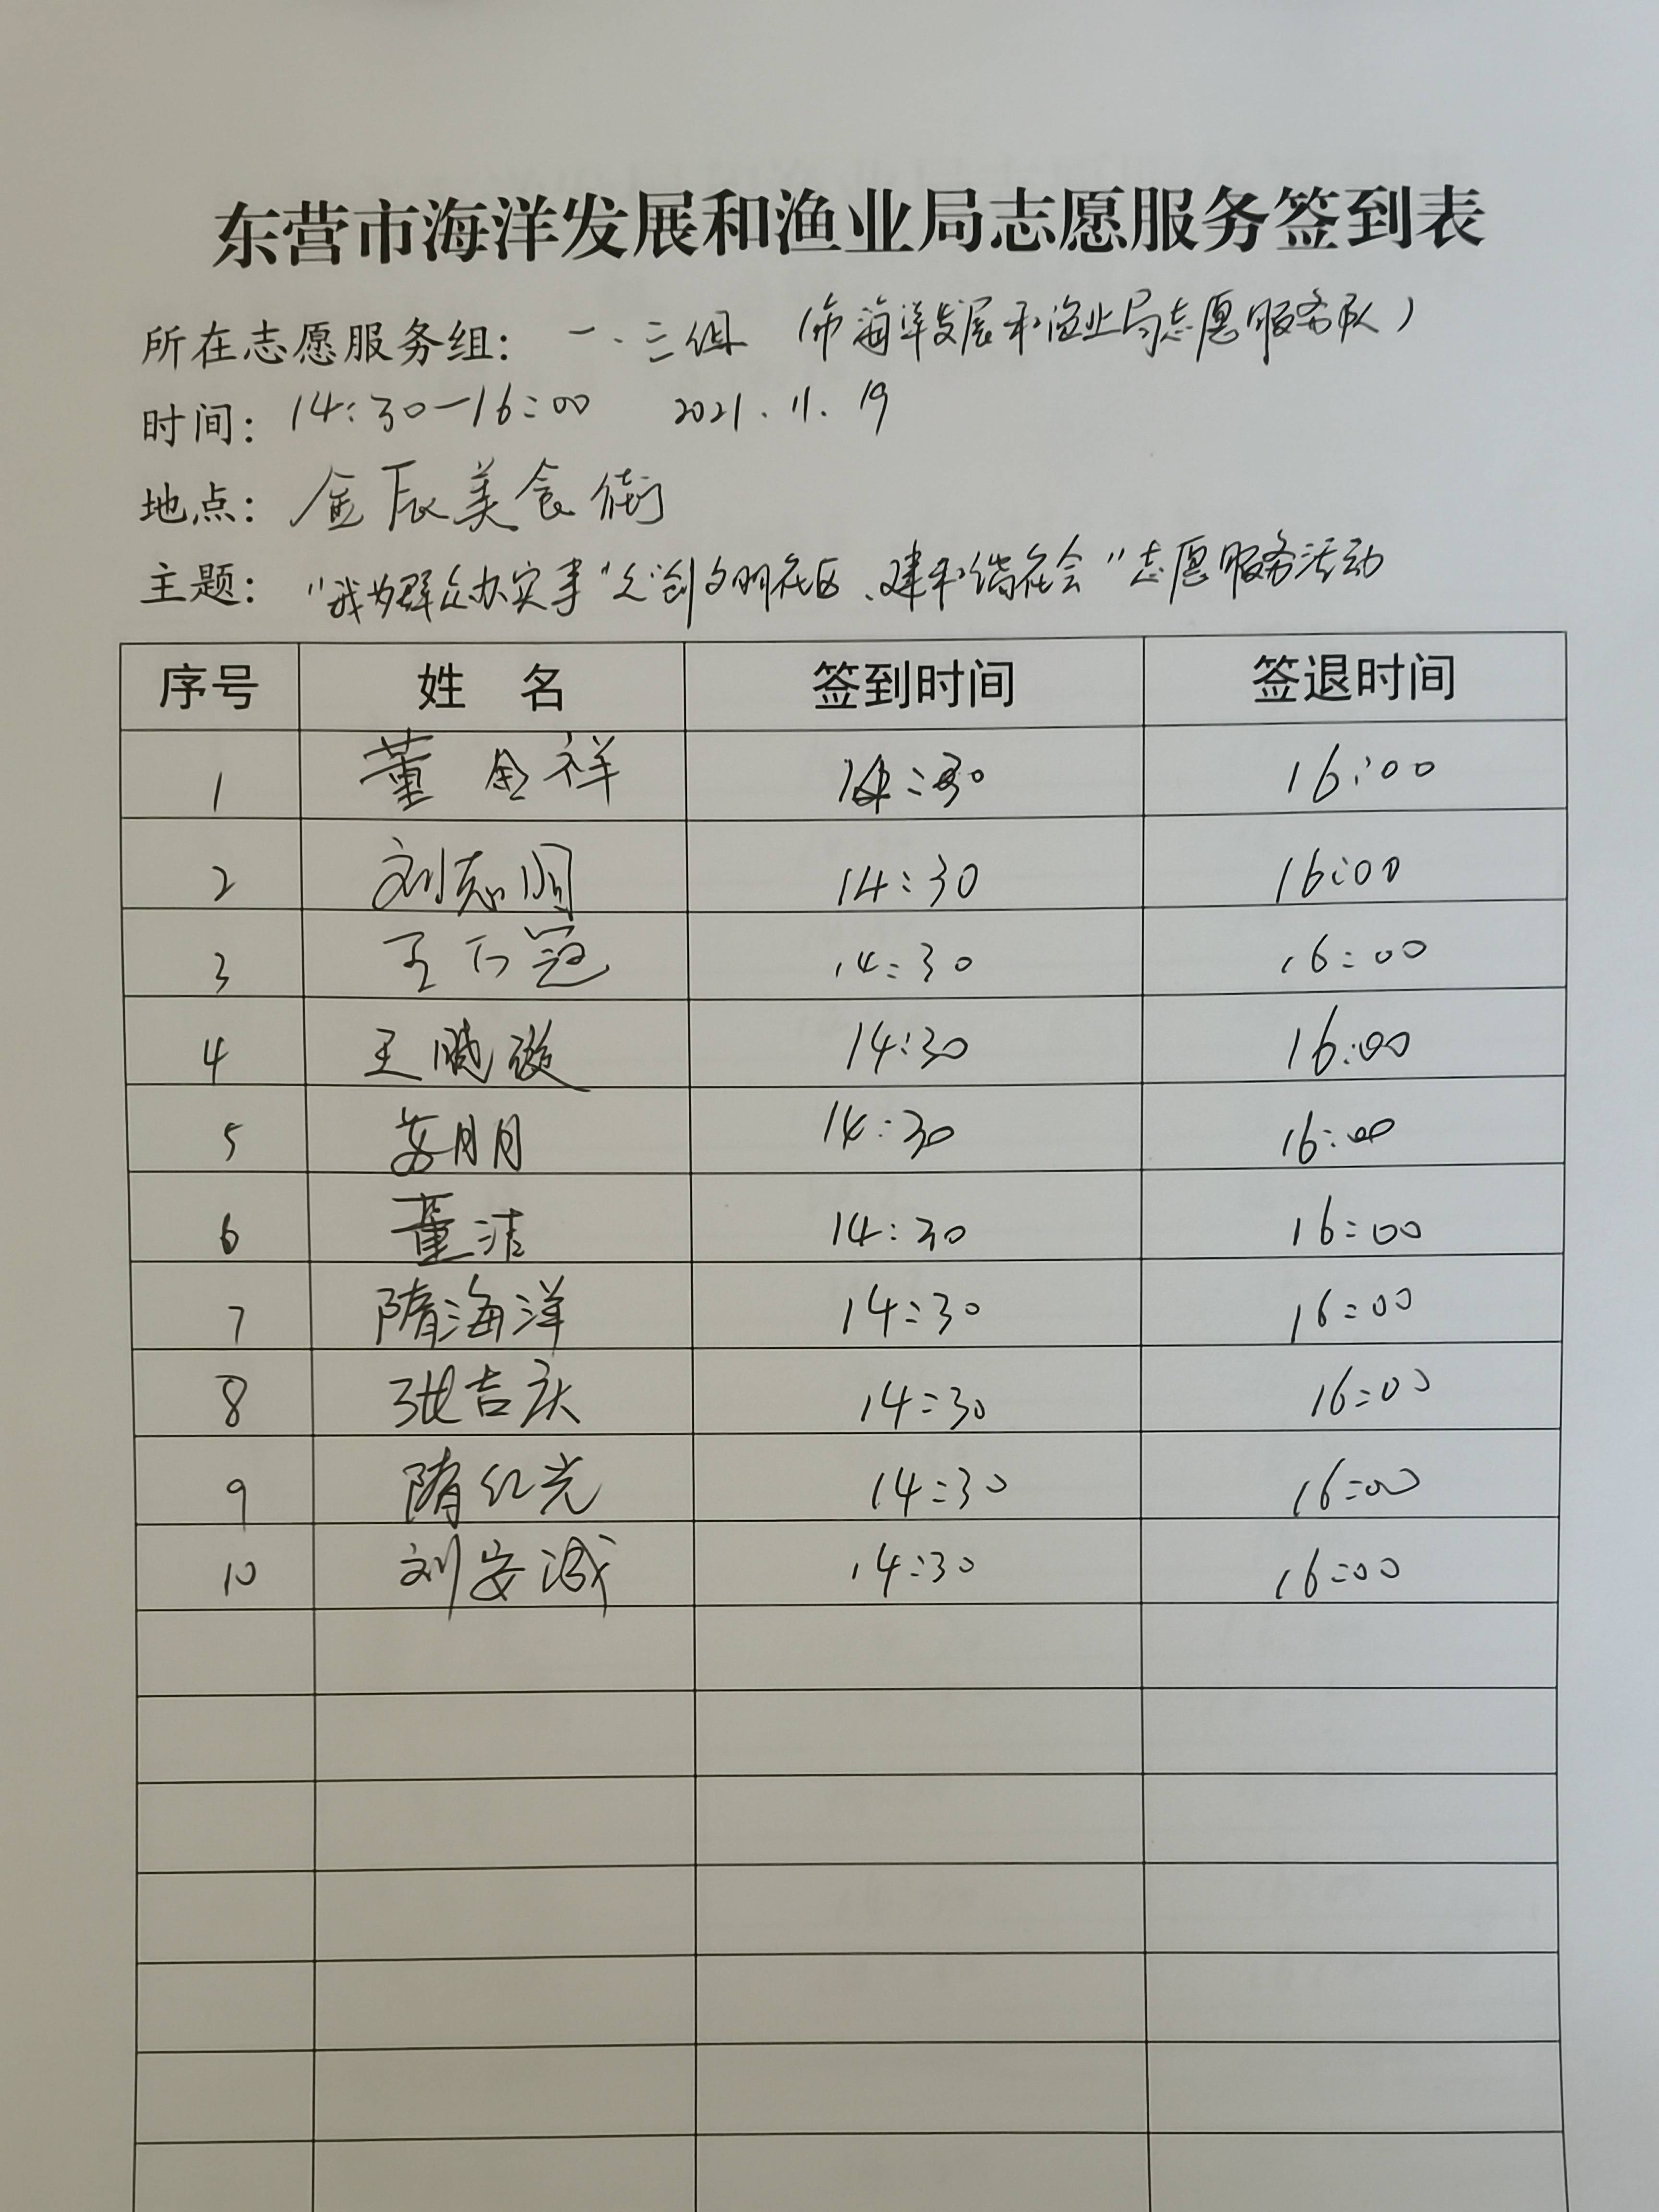 东营市海洋发展和渔业局志愿服务签到表
所在志愿服务组: 一、三组 (市海洋发展和渔业局志愿服务队)
时间: 14:30—16:00 2021.11.19
地点: 金辰美食街
主题: "我为群众办实事"之"创文明社区、建和谐社会"志愿服务活动
序号 姓 名 签到时间 签退时间
1 董金祥 14:30 16:00
2 刘志国 14:30 16:00
3 王 冠 14:30 16:00
4 王晓 14:30 16:00
5 苏明月 14:30 16:00
6 董洁 14:30 16:00
7 隋海洋 14:30 16:00
8 张吉庆 14:30 16:00
9 隋红光 14:30 16:00
10 刘安诚 14:30 16:00